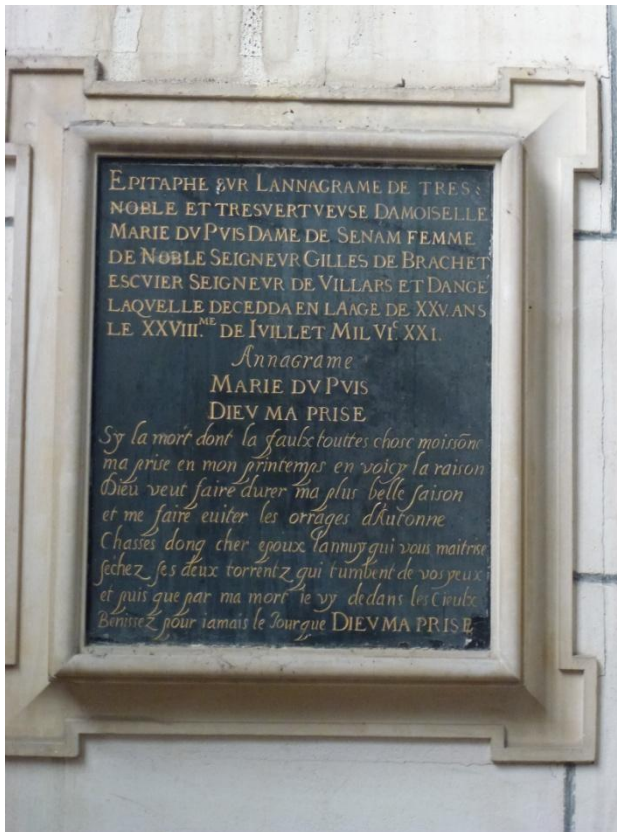 EPITAPHE SVR LANNAGRAME DE TRES:
NOBLE ET TRESVERTVEVSE DAMOISELLE
MARIE DV PVIS DAME DE SENAM FEMME
DE NOBLE SEIGNEVR GILLES DE BRACHET
ESCVIER SEIGNEVR DE VILLARS ET DANGE
LAQVELLE DECEDDA EN LAAGE DE XXV. ANS
LE XXVIII.ME DE IVILLET MIL VI.C XXI.
Annagrame
MARIE DV PVIS
DIEV MA PRISE
Sy la mort dont la faulx touttes chose moissõne
ma prise en mon printemps en voicy la raison
Dieu veut faire durer ma plus belle saison
et me faire euiter les orrages dAutonne
Chasses donq cher epoux lannuy qui vous maitrise
sechez ses deux torrentz qui tumbent de vos yeux
et puis que par ma mort ie vy dedans les Cieulx
Benissez pour iamais le Jour que DIEV MA PRISE